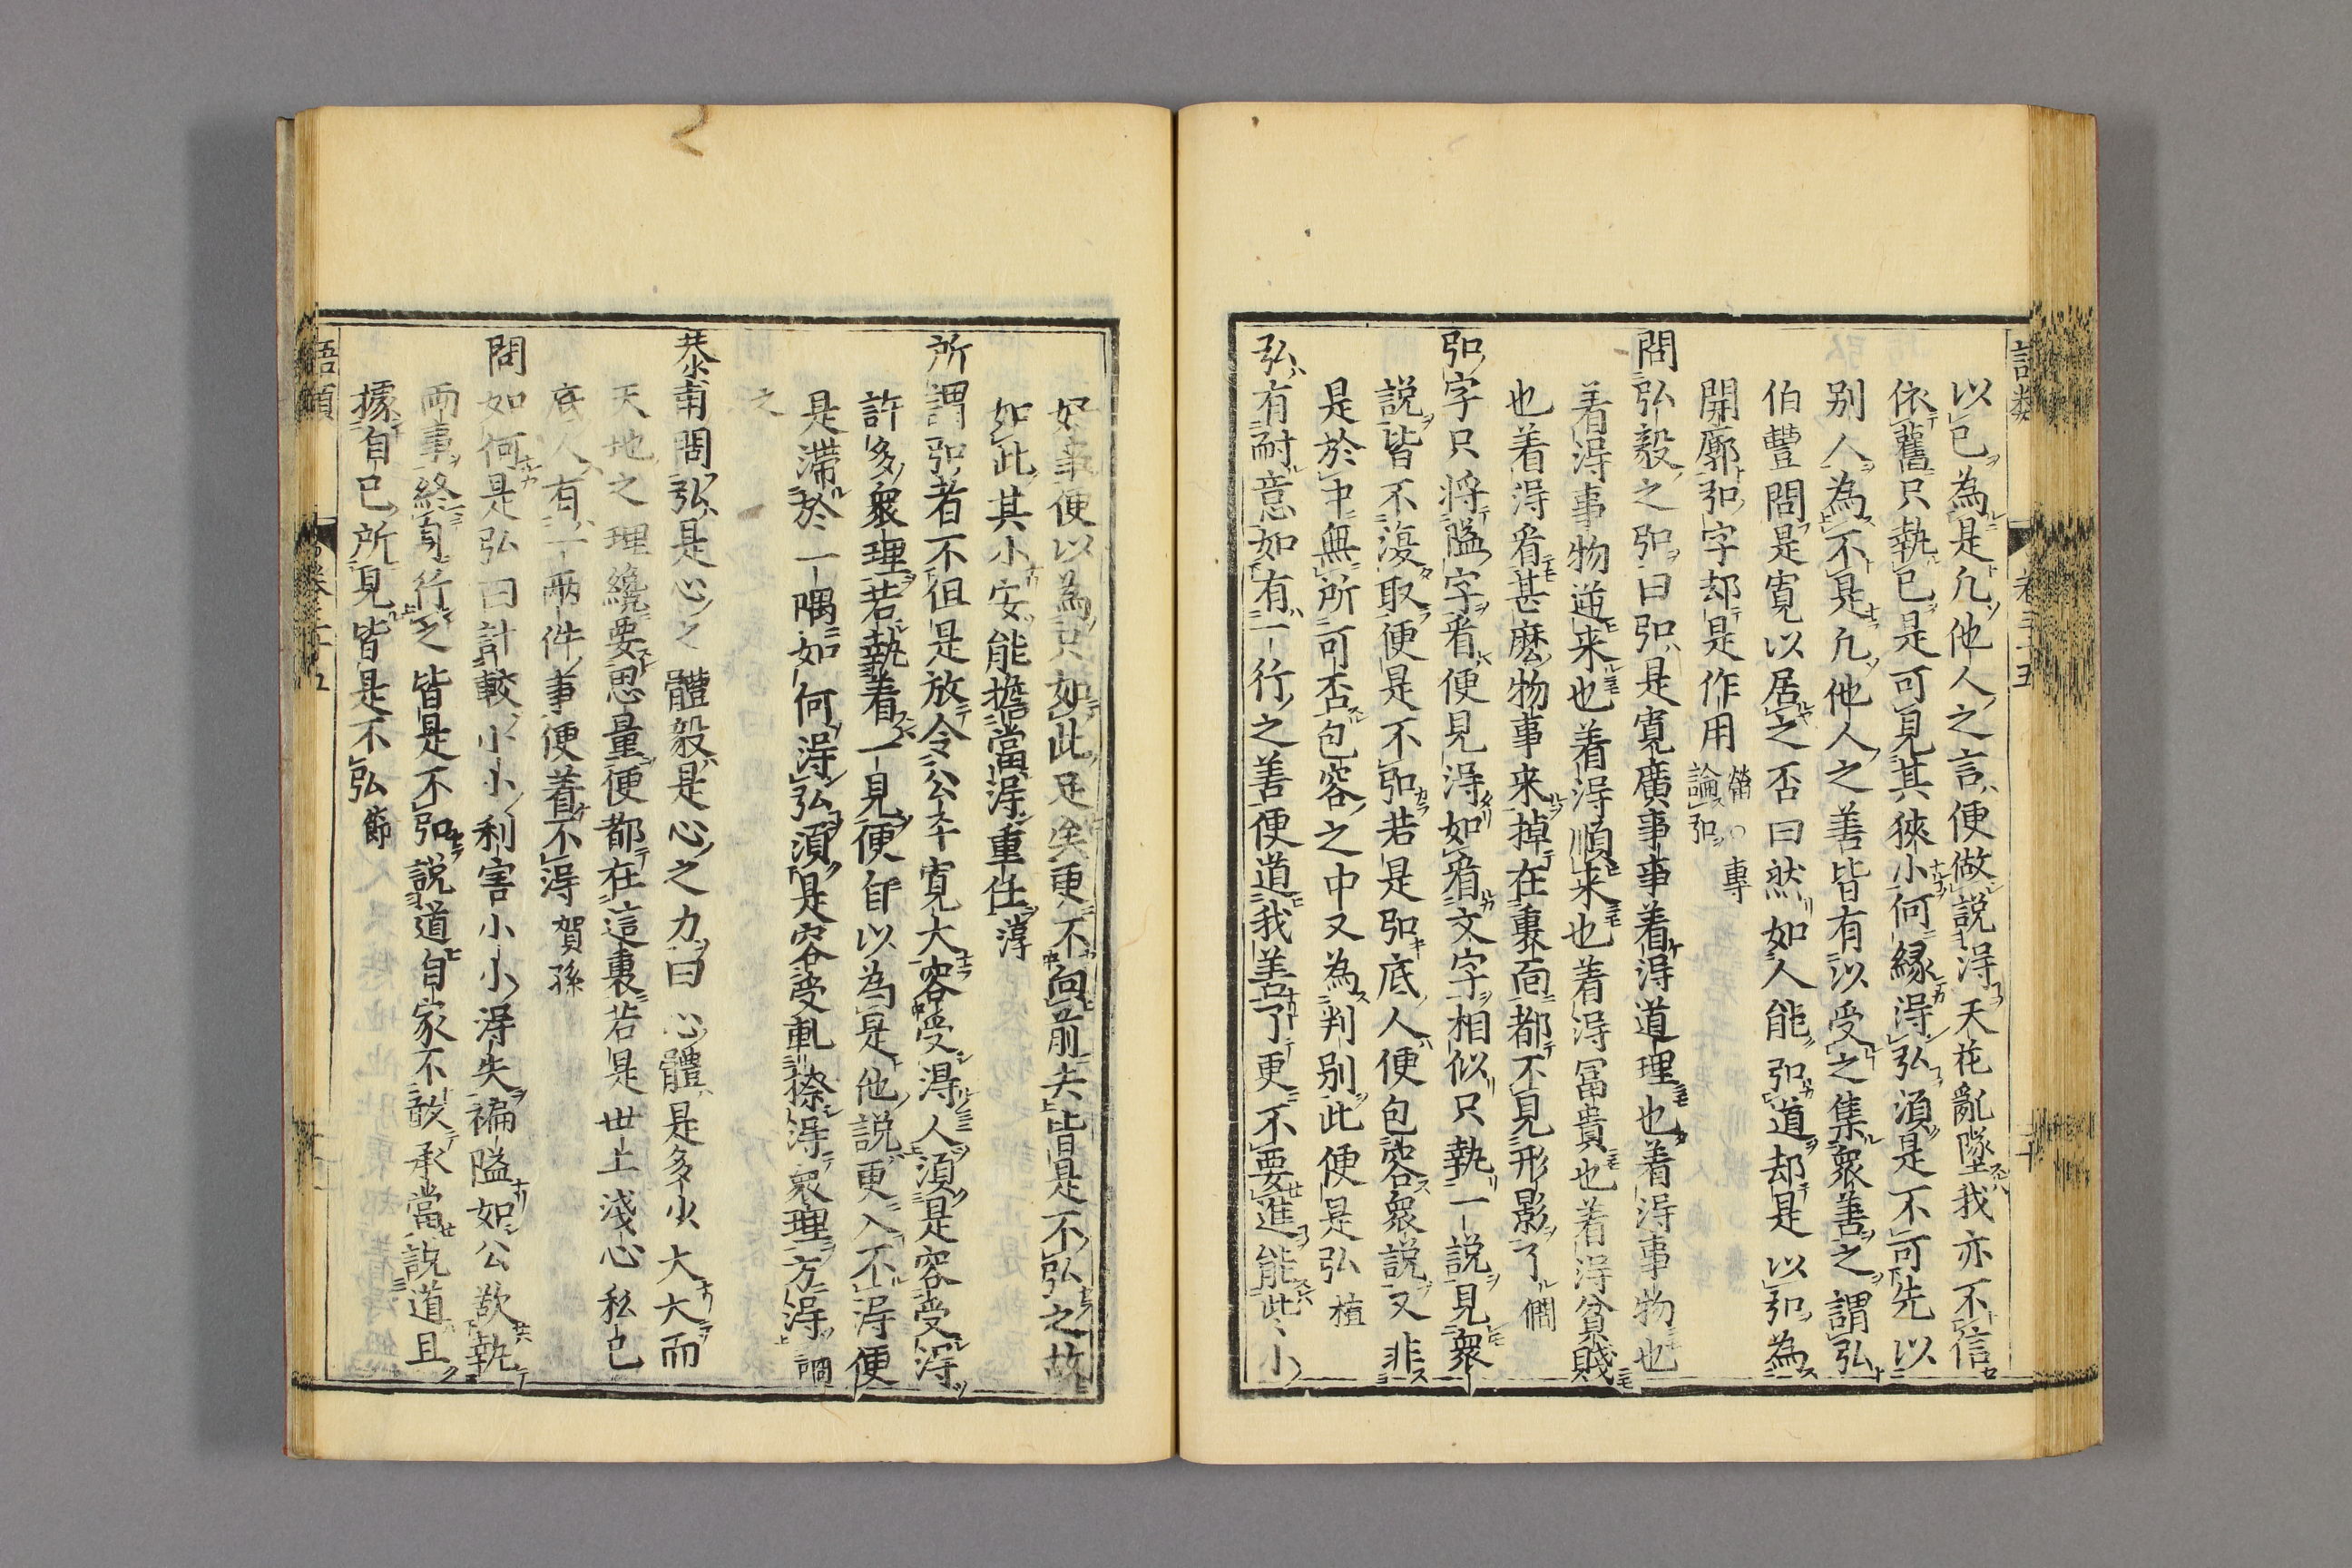 以己為是凢他人之言便做説得天花亂墜我亦不信
依舊只執己是可見其狹小何縁得弘須是不可先以
别人為不是凢他人之善皆有以受之集衆善之謂弘
伯豐問是寛以居之否曰然如人能弘道却是以弘為
開廓弘字却是作用 㽦○專論弘
問弘毅之弘曰弘是寛廣事事着得道理也着得事物也
着得事物逆来也着得順来也着得冨貴也着得貧賤
也着得㸔甚麽物事来掉在裏面都不見形影了 僩
弘字只将隘字㸔便見得如㸔文字相似只執一説見衆
説皆不復取便是不弘若是弘底人便包容衆説又非
是於中無所可否包容之中又為判别此便是弘 植
弘有耐意如有一行之善便道我善了更不要進能此小
好事便以為只如此足矣更不向前去皆是不弘之故
如此其小安能擔當得重任 淳
所謂弘者不但是放令公平寛大容受得人須是容受得
許多衆理若執着一見便自以為是他説更入不得便
是滯於一隅如何得弘須是容受軋捺得衆理方得 調
之
恭甫問弘是心之體毅是心之力曰心體是多少大大而
天地之理纔要思量便都在這裏若是世上淺心私己
底人有一兩件事便着不得 賀孫
問如何是弘曰計較小小利害小小得失褊隘如公欲執
兩事終身行之皆是不弘説道自家不敢承當説道且
據自己所見皆是不弘 節
語類
卷三十五